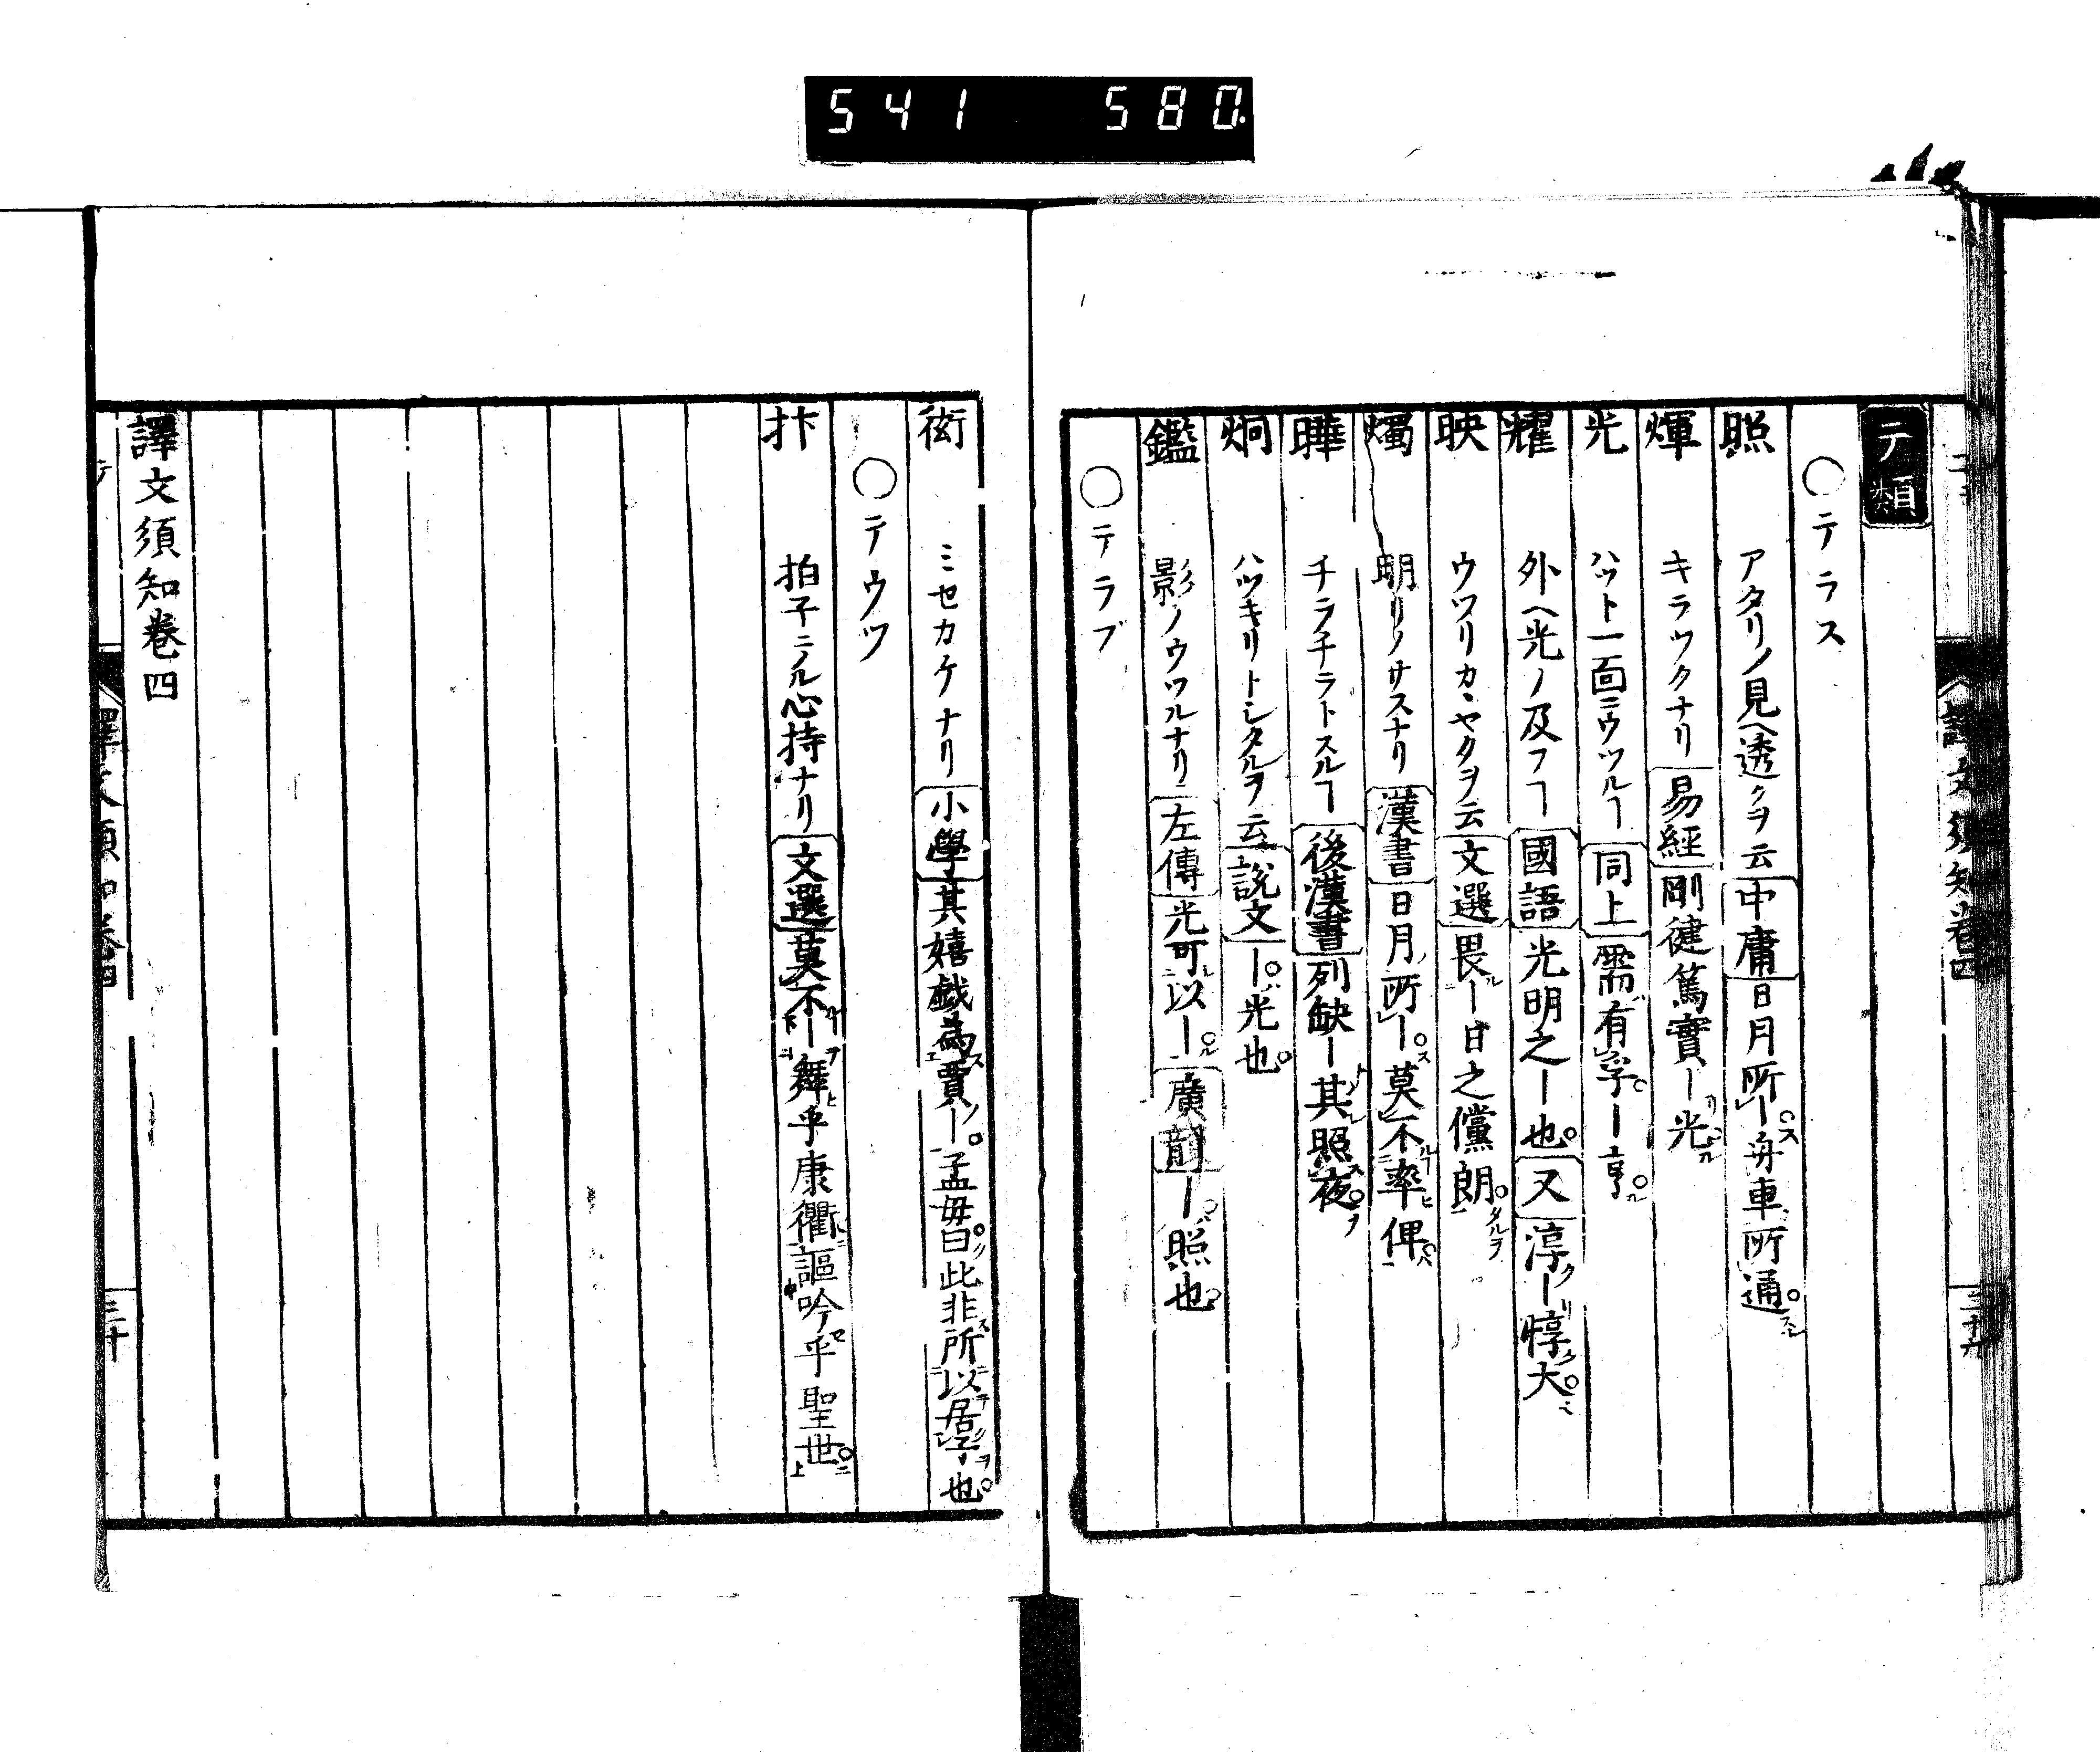 541 580
テ類
○テラス
照 アタリノ見ヘ透クヲ云 中庸 日月所ー舟車所通
煇 キラツクナリ 易經 剛健篤實ー光
光 ハツト一面ニウツルヿ 同上 需有孚ー亨
耀 外ヘ光ノ及フヿ 國語 光明之ー也 又 淳ー惇大
映 ウツリカヽヤクヲ云 文選 畏ー日之儻朗
燭 明リノサスナリ 漢書 日月所ー莫不率俾
曄 チラチラトスルヿ 後漢書 列缺ー其照夜
炯 ハツキリトシタルヲ云 説文 ー光也
鑑 影ノウツルナリ 左傳 光可以ー 廣韻 ー照也
○テラブ
衒 ミセカケナリ 小學 其嬉戯為賈ー孟母曰此非所以居子也
○テウツ
抃 拍子ニノル心持ナリ 文選 莫不ー舞乎康衢謳吟乎聖世
譯文須知卷四
譯文須知卷四
三十